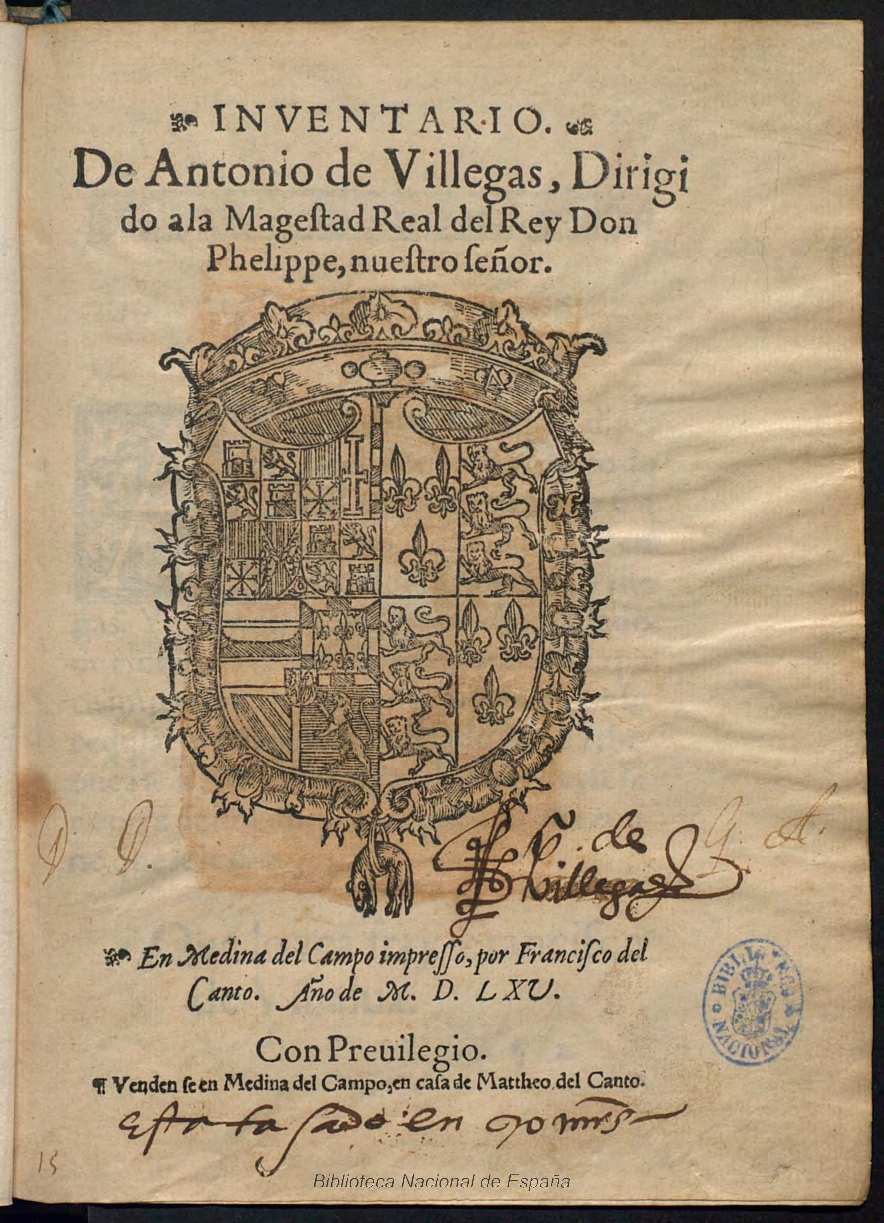 INVENTARIO.
De Antonio de Villegas, Dirigi
do a la Mageſtad Real del Rey Don
Phelippe, nueſtro ſeñor.
D. D. G. A.
de
Villegas
En Medina del Campo impreſſo, por Franciſco del
Canto. Año de M. D. LXV.
BIBLIOTECA NACIONAL
Con Preuilegio.
¶ Venden ſe en Medina del Campo, en caſa de Mattheo del Canto.
Esta tasado en 70 mrs
15
Biblioteca Nacional de España